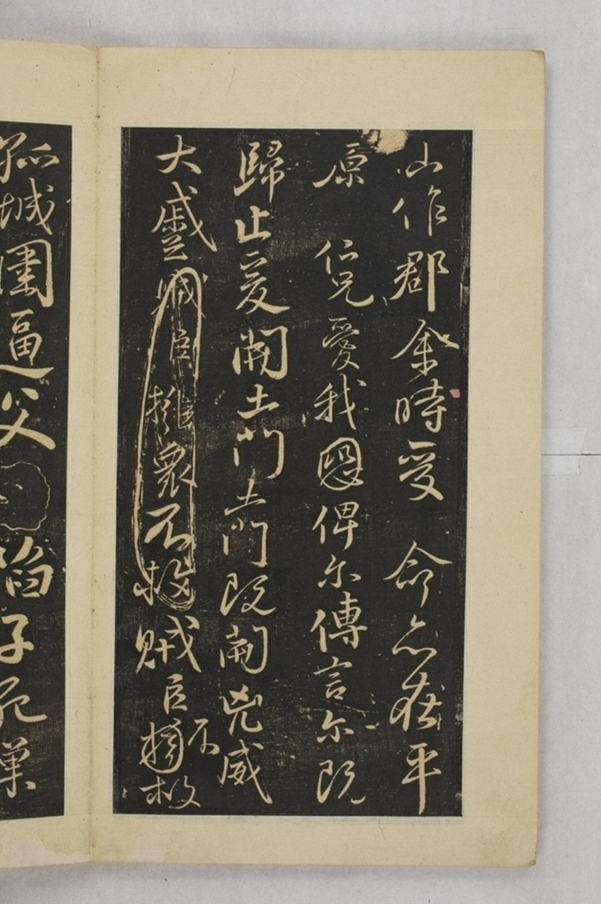 山作郡余時受命亦在平
原仁兄愛我恩俾尔傳言尔既
歸止爰開土門土門既開凶威
大蹙賊臣擁衆不救賊臣不擁救
孤城圍逼父陷子死巢